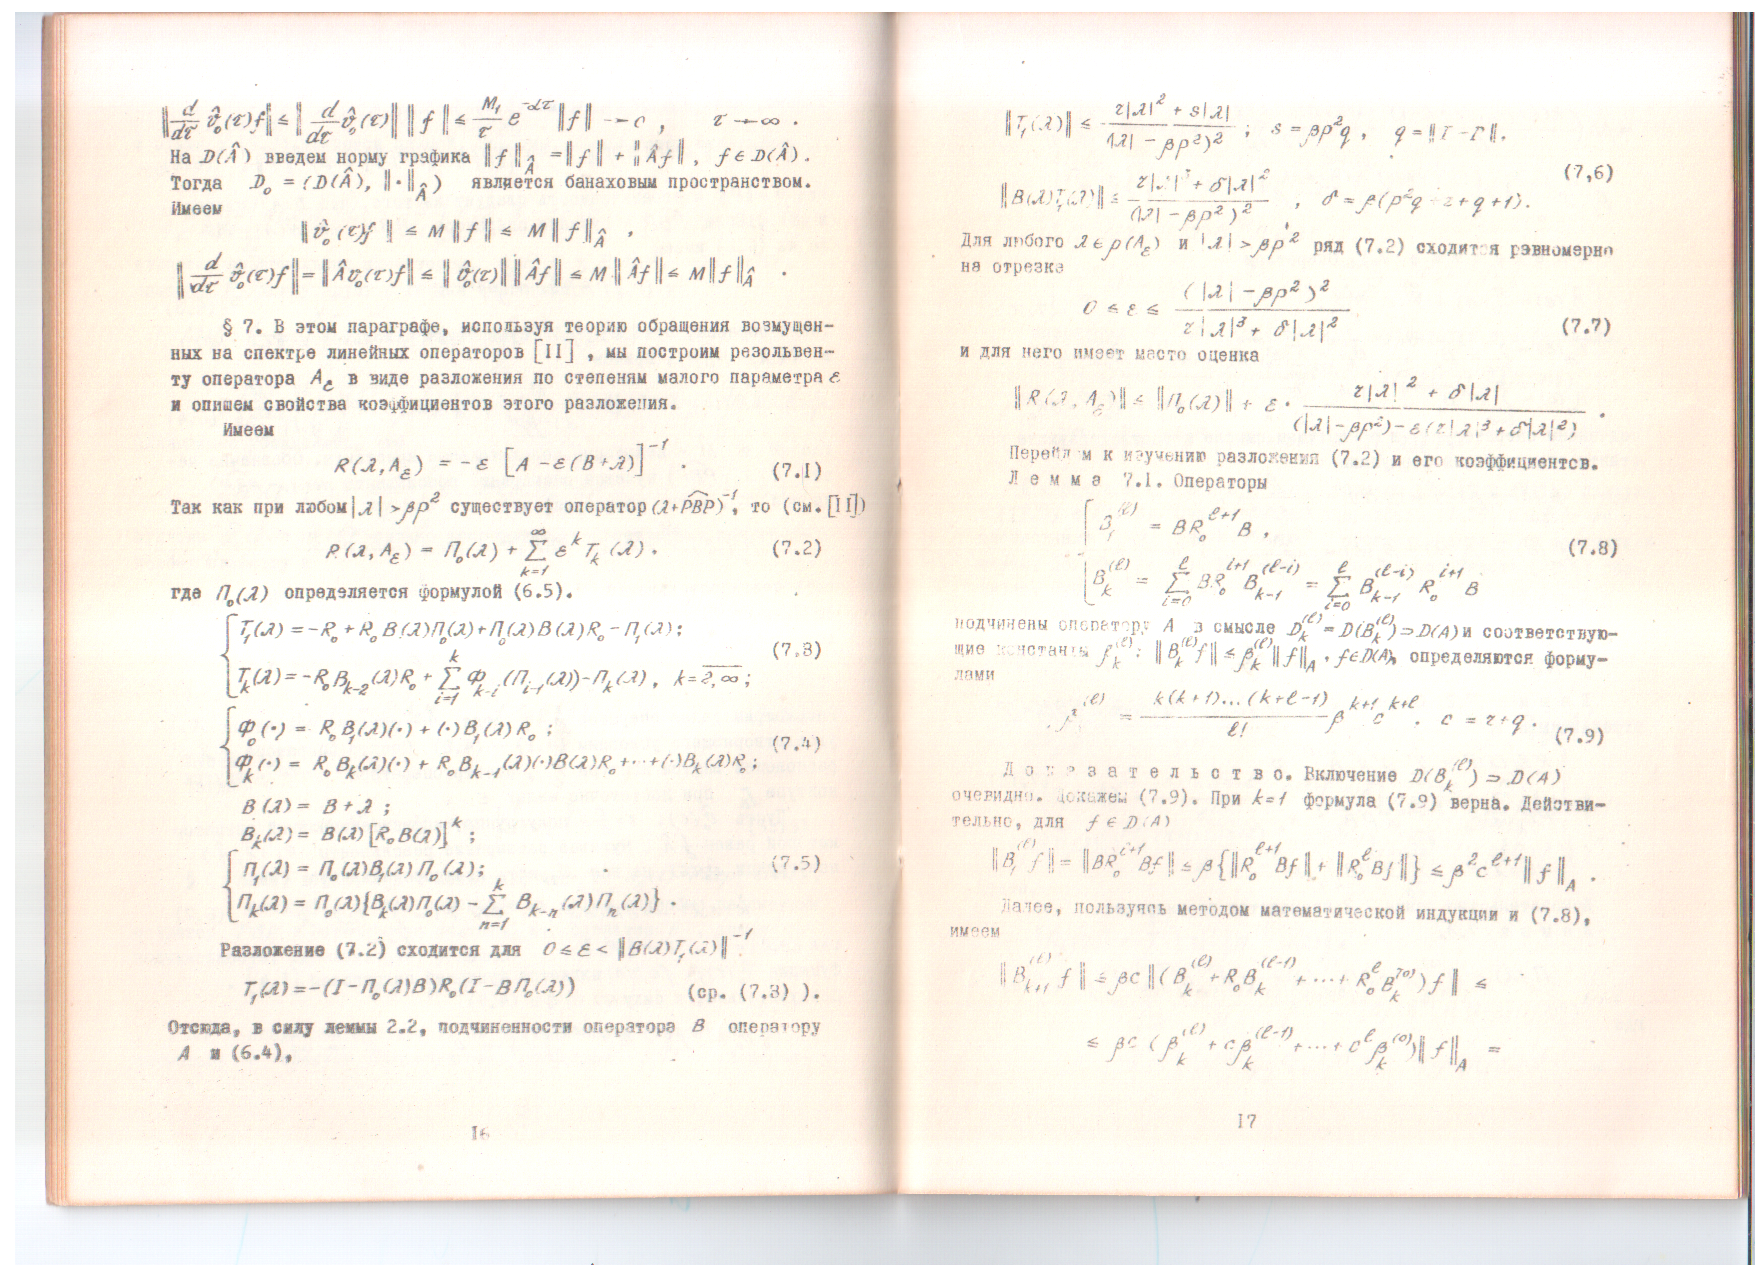 ‖d/dτ v̂₀(τ)f‖ ≤ ‖d/dτ v̂₀(τ)‖ ‖f‖ ≤ M₁/τ e^{-ατ} ‖f‖ → 0 , τ → ∞ .
На D(Â) введем норму графика ‖f‖_Â = ‖f‖ + ‖Âf‖ , f ∈ D(Â).
Тогда D₀ = (D(Â), ‖·‖_Â) является банаховым пространством.
Имеем
‖v̂₀(τ)f‖ ≤ M‖f‖ ≤ M‖f‖_Â ,
‖d/dτ v̂₀(τ)f‖ = ‖Âv₀(τ)f‖ ≤ ‖v̂₀(τ)‖ ‖Âf‖ ≤ M‖Âf‖ ≤ M‖f‖_Â .
§ 7. В этом параграфе, используя теорию обращения возмущен-
ных на спектре линейных операторов [II] , мы построим резольвен-
ту оператора A_ε в виде разложения по степеням малого параметра ε
и опишем свойства коэффициентов этого разложения.
Имеем
R(λ,A_ε) = -ε [A - ε(B+λ)]^{-1} . (7.1)
Так как при любом |λ| > βρ² существует оператор (λ+P͡BP)^{-1}, то (см.[II])
R(λ,A_ε) = Π₀(λ) + Σ_{k=1}^{∞} ε^k T_k(λ) . (7.2)
где Π₀(λ) определяется формулой (6.5).
T₁(λ) = -R₀ + R₀B(λ)Π₀(λ) + Π₀(λ)B(λ)R₀ - Π₁(λ);
T_k(λ) = -R₀B_{k-2}(λ)R₀ + Σ_{i=1}^{k} Φ_{k-i}(Π_{i-1}(λ)) - Π_k(λ), k = 2,∞; (7.3)
Φ₀(·) = R₀B₁(λ)(·) + (·)B₁(λ)R₀ ;
Φ_k(·) = R₀B_k(λ)(·) + R₀B_{k-1}(λ)(·)B(λ)R₀ + ··· + (·)B_k(λ)R₀ ; (7.4)
B(λ) = B + λ ;
B_k(λ) = B(λ)[R₀B(λ)]^k ;
Π₁(λ) = Π₀(λ)B₁(λ)Π₀(λ); (7.5)
Π_k(λ) = Π₀(λ){B_k(λ)Π₀(λ) - Σ_{n=1}^{k} B_{k-n}(λ)Π_n(λ)} .
Разложение (7.2) сходится для 0 ≤ ε < ‖B(λ)T₁(λ)‖^{-1} .
T₁(λ) = -(I-Π₀(λ)B)R₀(I-BΠ₀(λ)) (ср. (7.3) ).
Отсюда, в силу леммы 2.2, подчиненности оператора B оператору
A и (6.4),
16
‖T₁(λ)‖ ≤ (τ|λ|² + s|λ|)/(|λ| - βρ²)² ; s = βρ²q , q = ‖I-Γ‖.
(7,6)
‖B(λ)T₁(λ)‖ ≤ (τ|λ|³ + δ|λ|²)/(|λ| - βρ²)² , δ = β(ρ²q + τ + q + 1).
Для любого λ ∈ ρ(A_ε) и |λ| > βρ² ряд (7.2) сходится равномерно
на отрезке
0 ≤ ε ≤ (|λ| - βρ²)²/(τ|λ|³ + δ|λ|²) (7.7)
и для него имеет место оценка
‖R(λ, A_ε)‖ ≤ ‖Π₀(λ)‖ + ε · (τ|λ|² + δ|λ|)/((|λ|-βρ²) - ε(τ|λ|³ + δ|λ|²)) .
Перейдем к изучению разложения (7.2) и его коэффициентов.
Л е м м а 7.1. Операторы
B₁^{(ℓ)} = BR₀^{ℓ+1}B ,
(7.8)
B_k^{(ℓ)} = Σ_{i=0}^{ℓ} BR₀^{i+1}B_{k-1}^{(ℓ-i)} = Σ_{i=0}^{ℓ} B_{k-1}^{(ℓ-i)}R₀^{i+1}B
подчинены оператору A в смысле D_k^{(ℓ)} = D(B_k^{(ℓ)}) ⊃ D(A) и соответствую-
щие константы β_k^{(ℓ)}: ‖B_k^{(ℓ)}f‖ ≤ β_k^{(ℓ)}‖f‖_A , f∈D(A), определяются форму-
лами
β_k^{(ℓ)} = k(k+1)...(k+ℓ-1)/ℓ! β^{k+1} c^{k+ℓ} . c = τ+q . (7.9)
Д о к а з а т е л ь с т в о. Включение D(B_k^{(ℓ)}) ⊃ D(A)
очевидно. Докажем (7.9). При k=1 формула (7.9) верна. Действи-
тельно, для f ∈ D(A)
‖B₁^{(ℓ)}f‖ = ‖BR₀^{ℓ+1}Bf‖ ≤ β{‖R₀^{ℓ+1}Bf‖ + ‖R₀^{ℓ}Bf‖} ≤ β²c^{ℓ+1}‖f‖_A .
Далее, пользуясь методом математической индукции и (7.8),
имеем
‖B_{k+1}^{(ℓ)}f‖ ≤ βc‖(B_k^{(ℓ)} + R₀B_k^{(ℓ-1)} + ··· + R₀^{ℓ}B_k^{(0)})f‖ ≤
≤ βc (β_k^{(ℓ)} + cβ_k^{(ℓ-1)} + ··· + c^{ℓ}β_k^{(0)})‖f‖_A =
17